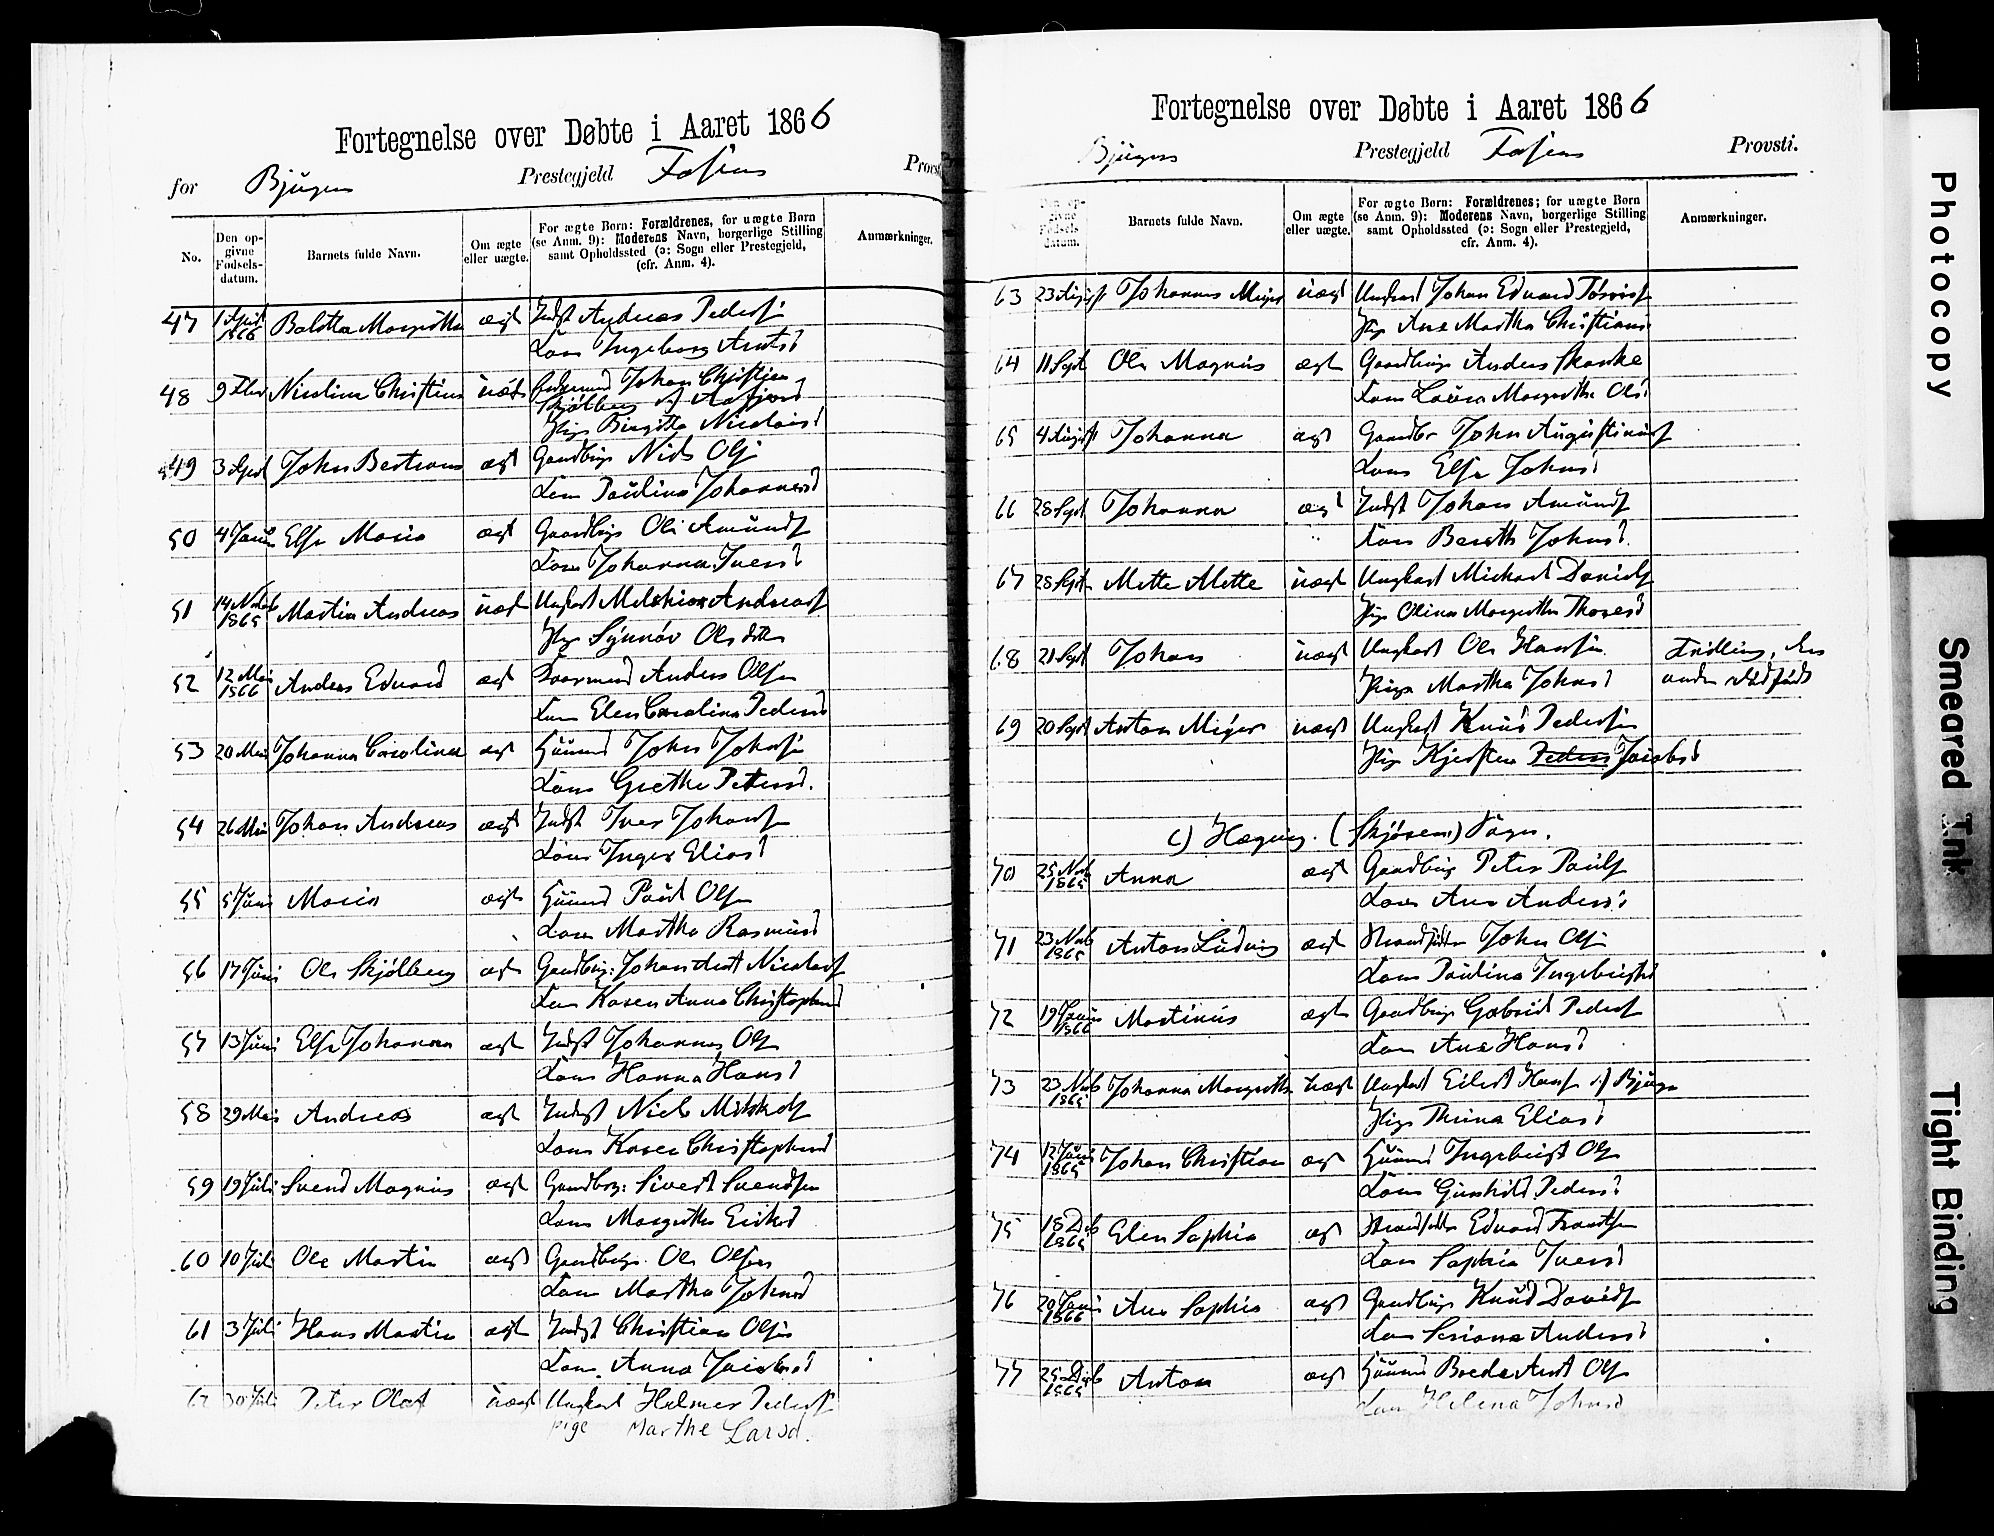 Fortegnelse over Døbte i Aaret 1866
for Bjugn Prestegjeld Fosens Provsti
No.
Den opgivne Fødselsdatum.
Barnets fulde Navn.
Om ægte eller uægte.
For ægte Børn: Forældrenes, for uægte Børn
(se Anm. 9): Moderens Navn, borgerlige Stilling
samt Opholdssted (ɔ: Sogn eller Prestegjeld,
(cfr. Anm. 4).
Anmærkninger.
47 1 April 1866 ægt Indst Andreas Peders
Kone Ingeborg Arntsd
48 9 Nicolina Christine uægt Johan Christian
Skjølberg af Aafjord
Pige Birgitta Nicolaisd
49 3 April John ægt Gaardbrg Niels Ols
Kone Paulina Johannesd
50 4 Juni Else Maria ægt Gaardbrg Ole Amunds
Kone Johanna Iversd
51 14 Novb 1865 Martin Andreas uægt Ungkarl Melchior Andreas
Pige Synnøv Olsdtter
52 12 Mai 1866 Anders Edvard ægt Anders Olsen
Kone Elen Carolina Pedersd
53 20 Mai Johanna Carolina ægt Huusmd John Johns
Kone Grethe Petersd.
54 26 Mai Johan Andreas ægt Indst Iver Johans
Kone Inger Eliasd
55 5 Juni Maria ægt Huusmd Paul Olsen
Kone Martha Rasmusd
56 17 Juni Ole Skjølberg ægt Gaardbrg: Johan Arnt Nicolais
Kone Karen Anna Christophersd
57 13 Juni Else Johanna ægt Indst Johannes Ols
Kone Hanna Hansd
58 29 Mai Andreas ægt Indst Niels
Kone Karen Christophersd
59 19 Juli Svend Magnus ægt Gaardbrg: Sivert Svendsen
Kone Margrethe Eriksd
60 10 Juli Ole Martin ægt Gaardbrg Ole Olsen
Kone Martha Johnsd
61 3 Juli Hans Martin ægt Indst Christian Olsen
Kone Anna Jacobsd
62 30 Juli Peter Olaf uægt Ungkarl Helmer Peders
pige Marthe Larsd.
Fortegnelse over Døbte i Aaret 1866
Bjugn Prestegjeld Fosens Provsti.
Den opgivne Fødselsdatum.
Barnets fulde Navn.
Om ægte eller uægte.
For ægte Børn: Forældrenes; for uægte Børn
(se Anm. 9): Moderens Navn, borgerlige Stilling
samt Opholdssted (ɔ: Sogn eller Prestegjeld,
cfr. Anm. 4).
Anmærkninger.
63 23 August Johannes uægt Ungkarl Johan Edvard
Pige Ane Martha Christians
64 11 Sept Ole Magnus ægt Gaardbrg Anders Skanke
Kone Laura Margrethe Olsd
65 4 August Johanna ægt Gaardbr John Augustinus
Kone Else Johnsd
66 28 Sept Johanna ægt Indst Johan Amunds
Kone Bereth Johnsd.
67 28 Sept Mette Alette uægt Ungkarl Mickael Daniels
Pige Olina Margrethe Thoresd
68 21 Sept Johan uægt Ungkarl Ole Hansen Tvilling, den
Pige Martha Johnsd anden dødfødt
69 20 Sept Anton Mejer uægt Ungkarl Knud Peders
Pige Kjersten Peders Jacobsd
c) Hegvig. (Skjøsen) Sogn.
70 25 Novb 1865 Anna ægt Gaardbrg Peter Pauls
Kone Ane Andersd
71 23 Novb 1865 Anton Ludvig ægt Strandsidder John Ols
Kone Paulina Ingebrigtsd
72 19 1866 Martinus ægt Gaardbrg Gabriel Peders
Kone Ane Hansd
73 23 Novb 1865 Johanna Margrethe uægt Ungkarl Eilert Hans af Bjugn
Pige Thrina Eliasd
74 12 1865 Johan Christian ægt Huusmd Ingebrigt Ols
Kone Gunhild Pedersd
75 18 Deb 1865 Elen Sophia ægt Strandsidder Edvard Frantsen
Kone Sophia Iversd
76 20 1866 Ane Sophia ægt Gaardbrg Knud Davids
Kone Seriana Andersd
77 25 Deb 1865 Anton ægt Huusmd Arnt Ols
Kone Helena Johnsd
Photocopy
Smeared Ink
Tight Binding